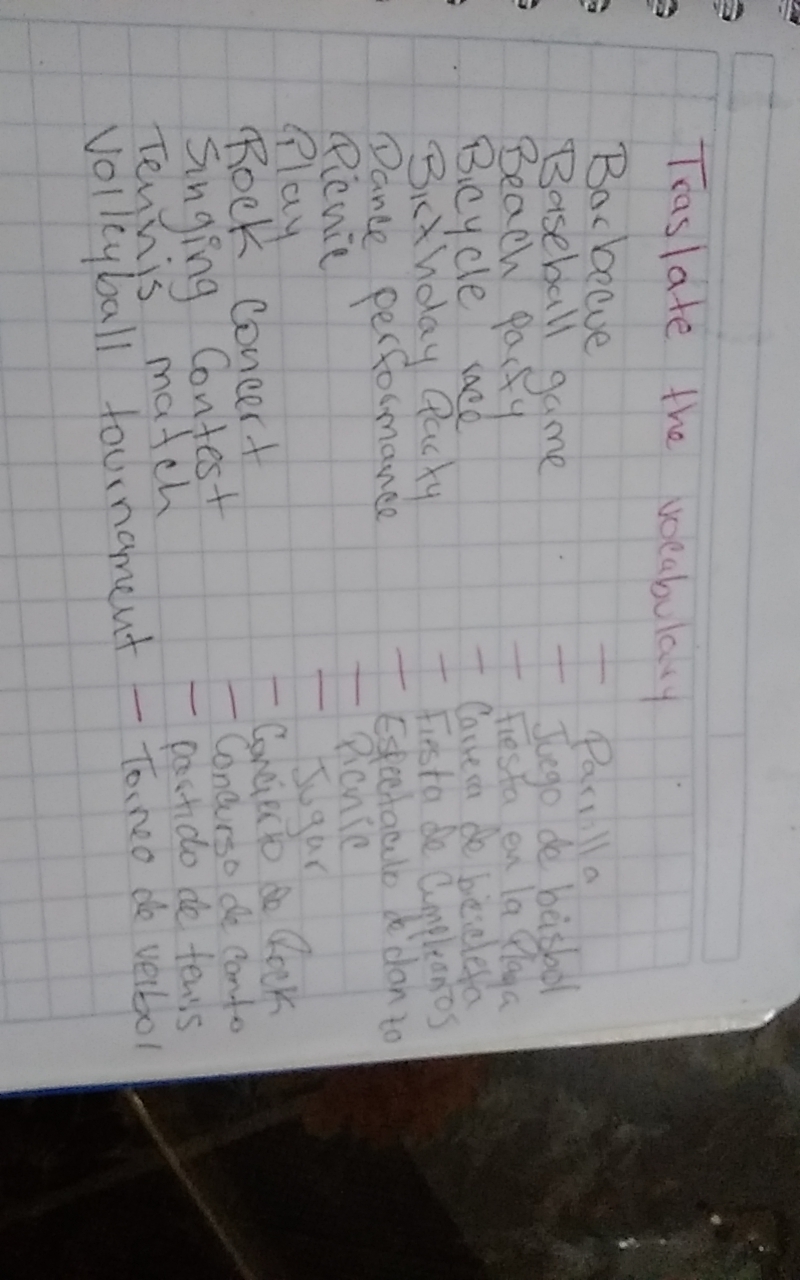 Traslate the vocabulary
Barbecue — Parrilla
Baseball game — Juego de béisbol
Beach party — Fiesta en la Playa
Bicycle race — Carrera de bicicleta
Birthday Party — Fiesta de Cumpleaños
Dance performance — Espectaculo de danza
Picnic — Picnic
Play — Jugar
Rock Concert — Concierto de Rock
Singing Contest — Concurso de canto
Tennis match — partido de tenis
Volleyball tournament — Torneo de veibol